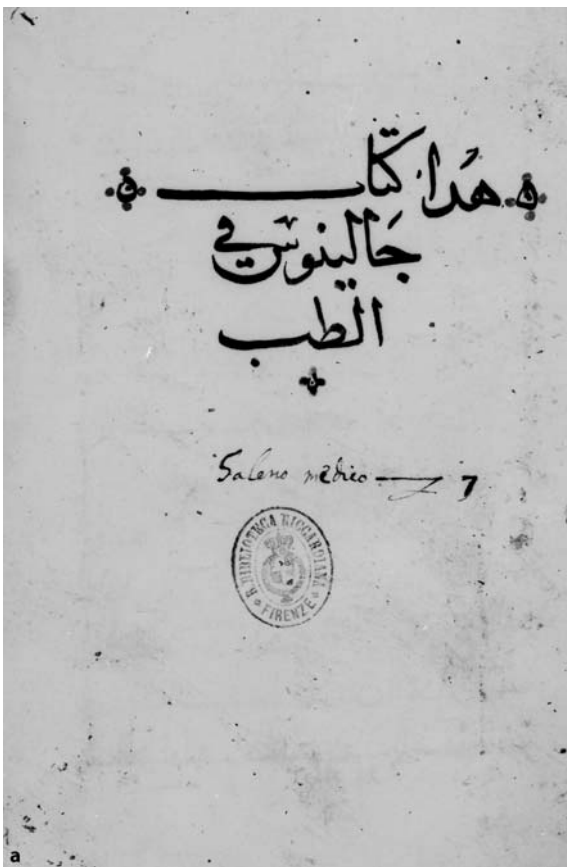 هدا كتاب
جالينوس في
الطب
Galeno medico 7
R. BIBLIOTECA RICCARDIANA
FIRENZE
a